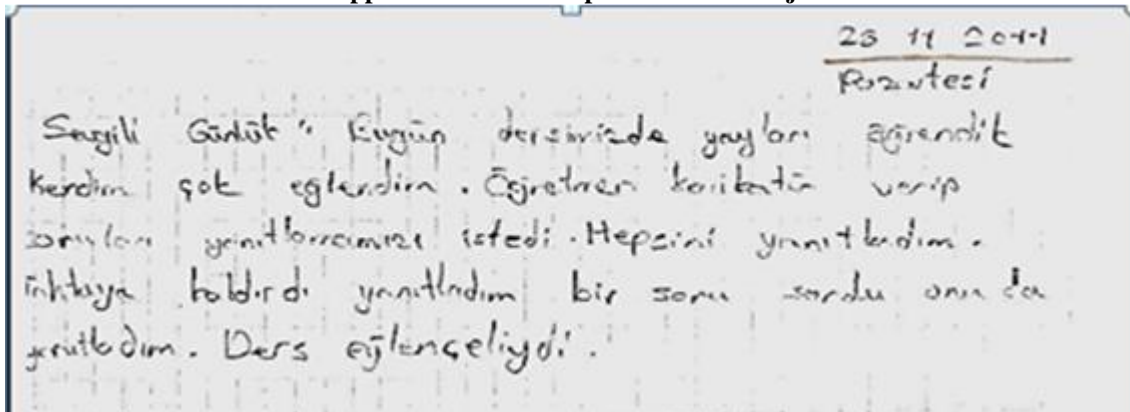 23 11 2011
Pazartesi
Sevgili Günlük " Bugün dersimizde yayları öğrendik
Kendim çok eğlendim. Öğretmen karikatür verip
soruları yanıtlamamızı istedi. Hepsini yanıtladım.
tahtaya kaldırdı yanıtladım bir soru sordu onu da
yanıtladım. Ders eğlenceliydi.